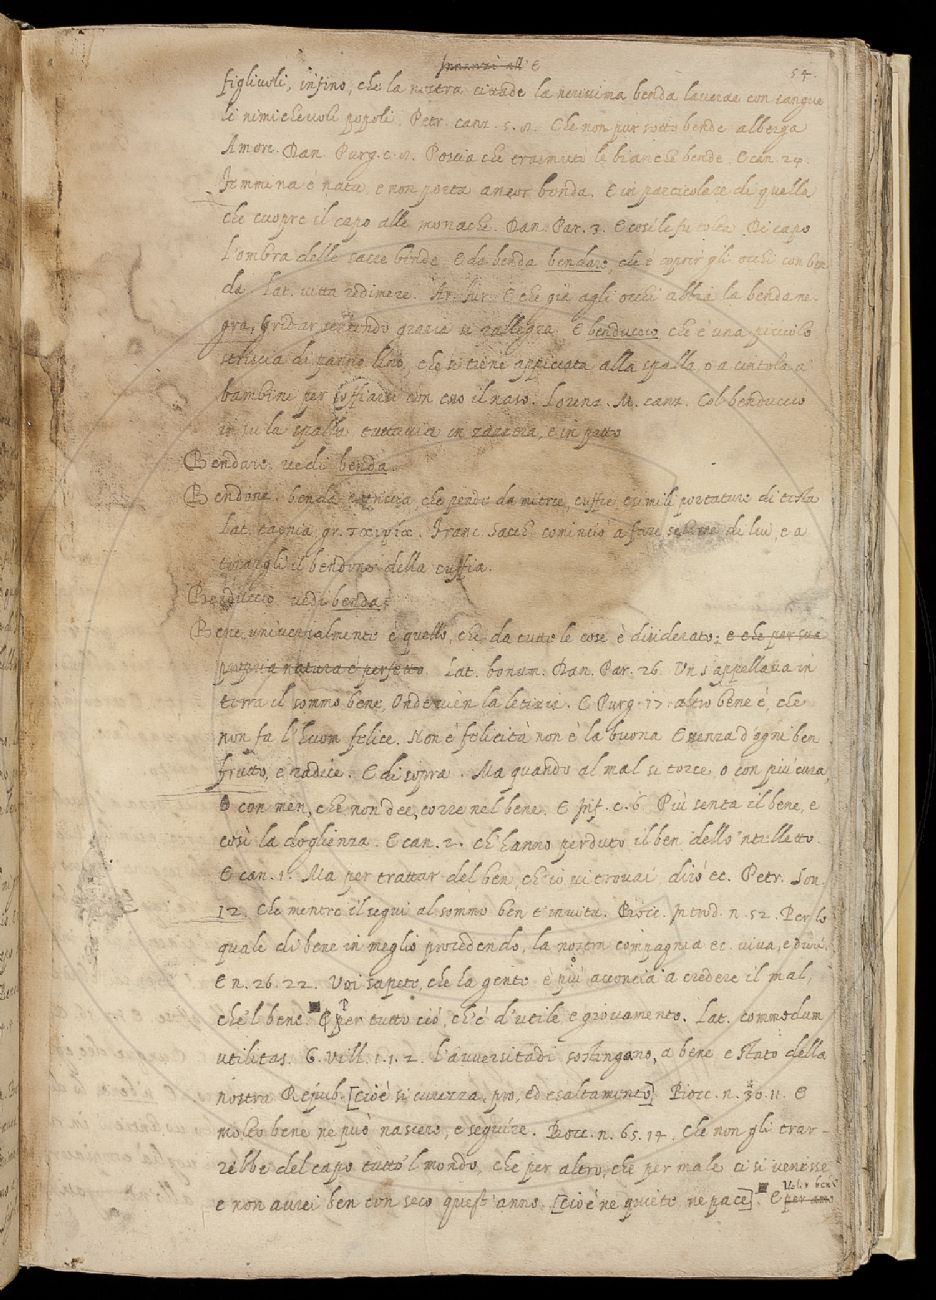 Innanzi all E
54.
figliuoli, infino, che la nostra citade la nerissima benda laverae con sangue
di nimichevoli popoli. Petr. canz. 5. 2. Che non pur sotto bende alberga
Amore. Dan. Purg. c. 8. Poscia che trasmutò le bianche bende. E can. 24.
Femmina è nata, e non porta ancor benda. E in particolare di quella
che cuopre il capo alle monache. Dan. Par. 3. E così le fu tolta Di capo
L'ombra delle sacre bende. E da benda bendare, che è coprir gli occhi con ben
da. Lat. vitta redimere. Ar. fur. E che già agli occhi abbia la benda ne-
gra, Gridar sentendo grazia si rallegra. E benduccio che è una piccola
striscia di panno lino, che si tiene appiccata alla spalla o a cintola a
bambini per soffiarsi con esso il naso. Lorenz. M. canz. Col benduccio
in su la spalla tuttavia in zazzera, e in petto
Bendare. vedi benda.
Bendone. benda e striscia, che pende da mitrie, cuffie e simili portature di testa
Lat. taenia, gr. ταινία. Franc. Sacch. cominciò a fare scherne di lui e a
tirargli il bendone della cuffia.
Benduccio vedi benda.
Bene, universalmente è quello, che da tutte le cose è disiderato; e che per sua
propria natura è perfetto Lat. bonum. Dan. Par. 26. Un s'appellava in
terra il sommo bene, Onde vien la letizia. E Purg. 17. altro bene è, che
non fa l'huom felice. Non è felicità non è la buona Essenza d'ogni ben
frutto, e radice. E di sopra. Ma quando al mal si torce, o con più cura,
O con men, che non dee, corre nel bene. E Inf. c. 6 Più senta il bene, e
così la doglienza. E can. 2. ch'hanno perduto il ben dello 'ntelletto.
E can. 1. Ma per trattar del ben, ch'io vi trovai, dirò ec. Petr. Son.
12. Che mentre il segui al sommo ben t'invita. Bocc. Introd. n. 52. Per lo
quale di bene in meglio procedendo, la nostra compagnia ec. viva, e duri.
E n. 26. 22. Voi sapete, che la gente è più acconcia a credere il mal,
che 'l bene. E per tutto ciò, ch'è d'utile e giovamento. Lat. commodum
utilitas. G. Vill. 1. 1. 2. l'avversitadi sostengano, a bene e stato della
nostra Repub. [cioè sicurezza, pro, ed esaltamento]. Bocc. n. 30. 11. E
molto bene ne può nascere, e seguire. Bocc. n. 65. 14. Che non gli trar-
rebbe del capo tutto 'l mondo, che per altro, che per male ci si venisse
e non avrei ben con seco quest'anno [cioè ne quiete ne pace]. E per amo
Voler bene